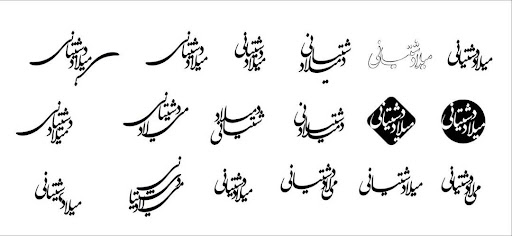 میلاد دشتیانی میلاد دشتیانی میلاد دشتیانی میلاد دشتیانی میلاد دشتیانی میلاد دشتیانی
میلاد دشتیانی میلاد دشتیانی میلاد دشتیانی میلاد دشتیانی میلاد دشتیانی میلاد دشتیانی
میلاد دشتیانی میلاد دشتیانی میلاد دشتیانی میلاد دشتیانی میلاد دشتیانی میلاد دشتیانی